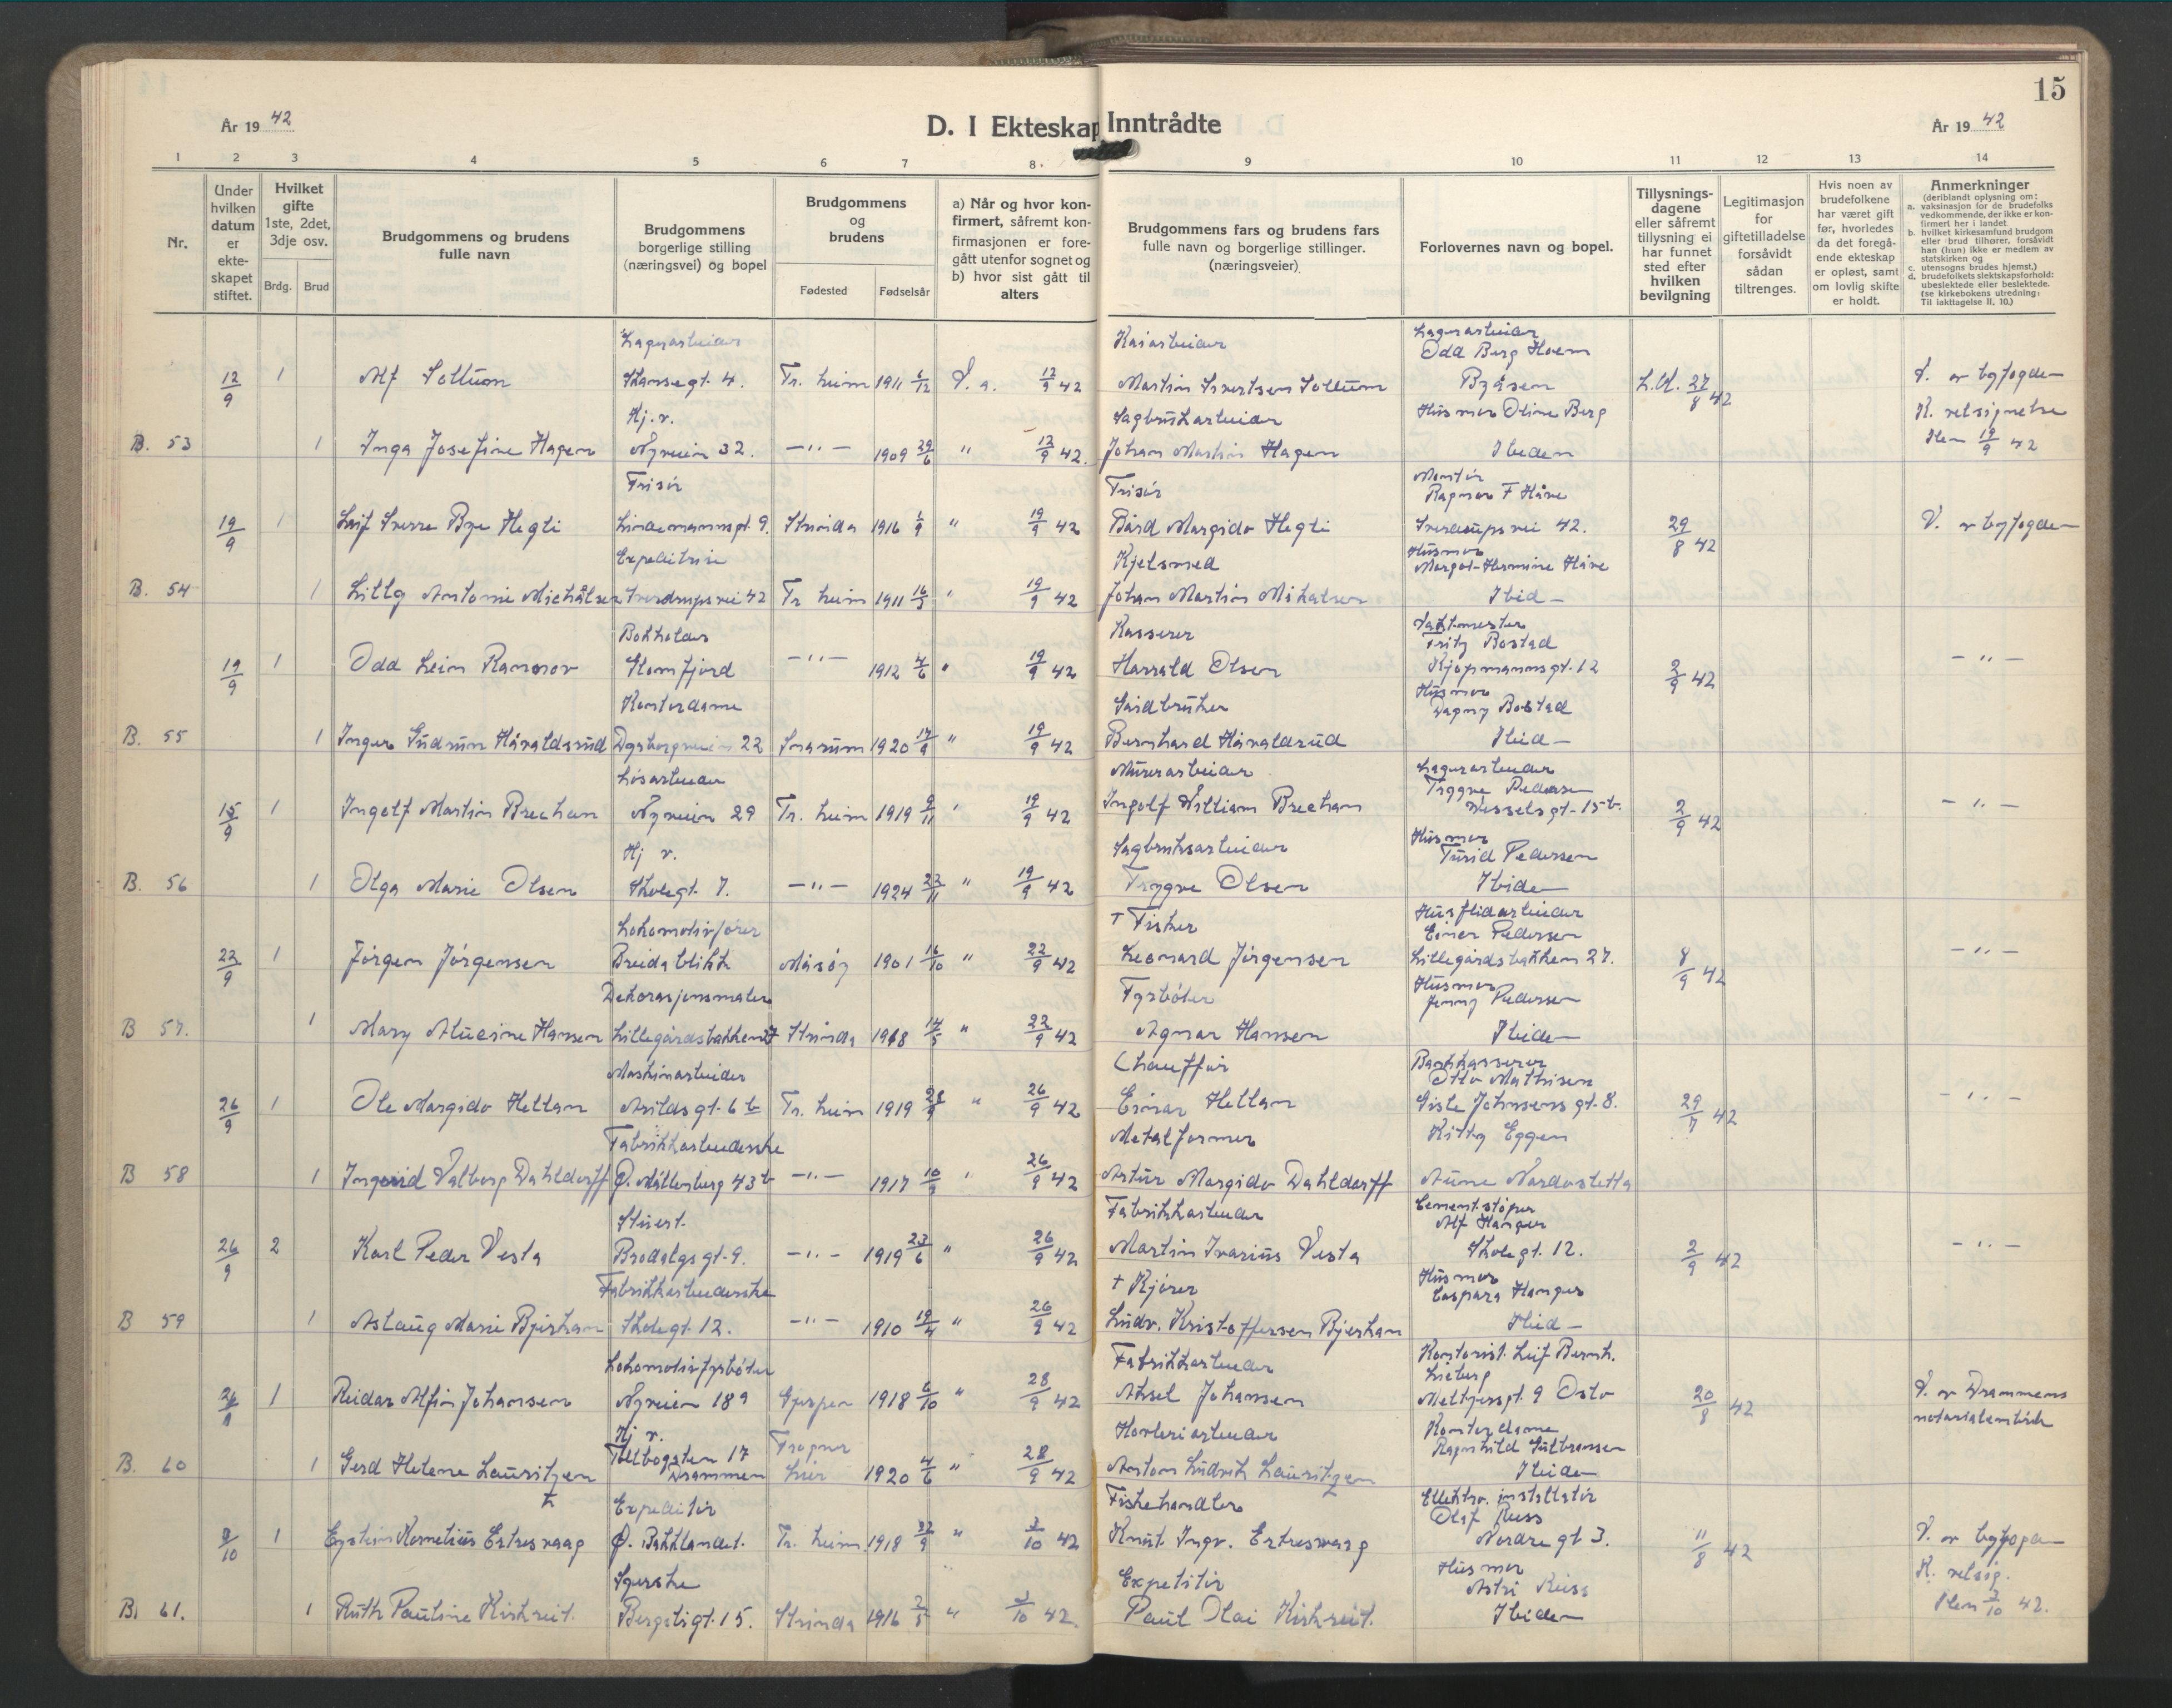 15
År 19 42
D. I Ekteskap Inntrådte
År 19 42
1 2 3 4 5 6 7 8. 9 10 11 12 13 14
Nr.
Under hvilken datum er ekteskapet stiftet.
Hvilket gifte 1ste, 2det, 3dje osv.
Brdg. Brud
Brudgommens og brudens fulle navn
Brudgommens borgerlige stilling (næringsvei) og bopel
Brudgommens og brudens
Fødested Fødselsår
a) Når og hvor konfirmert, såfremt konfirmasjonen er foregått utenfor sognet og b) hvor sist gått til alters
Brudgommens fars og brudens fars fulle navn og borgerlige stillinger. (næringsveier)
Forlovernes navn og bopel.
Tillysningsdagene eller såfremt tillysning ei har funnet sted efter hvilken bevilgning
Legitimasjon for giftetilladelse forsåvidt sådan tiltrenges.
Hvis noen av brudefolkene har været gift før, hvorledes da det foregående ekteskap er opløst, samt om lovlig skifte er holdt.
Anmerkninger
(deriblandt oplysning om:
a. vaksinasjon for de brudefolks vedkommende, der ikke er konfirmert her i landet
b. hvilket kirkesamfund brudgom eller brud tilhører, forsåvidt han (hun) ikke er medlem av statskirken og
c. utensogns brudes hjemst.)
d. brudefolkets slektskapsforhold: ubeslektede eller beslektede. (se kirkebokens utredning: Til iakttagelse II, 10.)
Lagerarbeider Kaiarbeider Lagerarbeider
Odd Berg Hoem
12/9 1 Alf Sollum Skansegt. 4. Tr. heim 1911 6/12 12/9 42 Martin Sivertsen Sollum Byåsen 27/8 42 V. av byfogden
Hj. v. Sagbrukarbeider Husmor Oline Berg K. velsignelse
B. 53 1 Inga Josefine Hagen Nyveien 32. —"— 1909 29/6 " 12/9 42. Johan Martin Hagen Ibiden 19/9 42
Frisør Frisør Montør
Ragnar F Håve
19/9 1 Leif Sverre Bye Hegli Lindemannsgt. 9. Strinda 1916 1/9 " 19/9 42 Bård Margido Hegli Sverdrupsvei 42. 29/8 42 V. av byfogden
Expeditrise Kjelsmed Husmor
Margot Hermine Håve
B. 54 1 Lilly Antonie Michalsen Sverdrupsvei 42 Tr heim 1911 16/3 " 19/9 42 Johan Martin Mikalsen Ibid—
Bokholder Kasserer Vaktmester
Fritz Bostad
19/9 1 Odd Lein Ramsøy Glomfjord —"— 1912 4/6 " 19/9 42 Harald Olsen Kjøpmannsgt. 12 2/9 42 — " —
Kontordame Småbruker Husmor
Dagny Bostad
B. 55 1 Inger Gudrun Håvaldsrud Dyrborgveien 22 Snarum 1920 17/9 " 19/9 42 Bernhard Håvaldsrud Ibid—
Løsarbeider Murerarbeider Lagerarbeider
Trygve Pedersen
15/9 1 Ingolf Martin Brechan Nyveien 29 Tr. heim 1919 9/11 " 19/9 42 Ingolf William Brechan Wesselsgt. 15b. 2/9 42 — " —
Hj v. Sagbruksarbeider Husmor
Turid Pedersen
B. 56 1 Olga Marie Olsen Skolegt. 7. —"— 1924 22/11 " 19/9 42 Trygve Olsen Ibiden
Lokomotivfører † Fisker Husflidarbeider
Einar Pedersen
22/9 1 Jørgen Jørgensen Breidablikk Måsøy 1901 16/10 " 22/9 42 Leonard Jørgensen Lillegårdsbakken 27. 8/9 42 — " —
Dekorasjonsmaler Fyrbøter Husmor
Jenny Pedersen
B 57. 1 Mary Alucine Hansen Lillegårdsbakken 27 Strinda 1918 14/5 " 22/9 42 Agnar Hansen Ibiden
Maskinarbeider Chauffør Bankkasserer
Otto Mathisen
26/9 1 Ole Margido Hellan Arildsgt. 6b Tr. heim 1919 28/9 " 26/9 42 Einar Hellan Giske Johnsens gt. 8. 29/7 42 — " —
Fabrikkarbeiderske Metalformer Kitty Eggen
B 58 1 Ingerid Valborg Dahldorff Ø. Møllenberg 43b —"— 1917 10/9 " 26/9 42 Artur Margido Dahldorff Aune Nardosletta
Stuert Fabrikkarbeider Cementstøper
Alf Hanger
26/9 2 Karl Peder Vesta Brodalgs gt. 9. —"— 1919 23/6 " 26/9 42 Martin Ivarius Vesta Skolegt. 12. 2/9 42 — " —
Fabrikkarbeiderske † Kjører Husmor
Caspara Hanger
B 59 1 Aslaug Marie Bjerkan Skolegt. 12. —"— 1910 19/4 " 26/9 42 Ludv. Kristoffersen Bjerkan Ibid—
Lokomotivfyrbøter Fabrikkarbeider Kontorist. Leif Bernh.
Lieberg
1 Reidar Alfin Johansen Nyveien 189 Gjerpen 1918 6/10 " 28/9 42 Aksel Johansen Meltzersgt. 9 Oslo 20/8 42 V. av Drammens
Hj v. Kontordame notarialembede
Ragnhild Gulbransen
B. 60 1 Gerd Helene Lauritzen Tollbogaten 17 Drammen Lier 1920 4/6 " 28/9 42 Anton Ludvik Lauritzen Ibiden
Expeditør Fiskehandler Elektro. installatør
Olaf Russ
3/10 1 Eystein Kornelius Ertresvaag Ø. Bakklandet. Tr. heim. 1918 " 3/10 42 Knut Ingv. Ertresvaag Nordre gt 3. 11/8 42 V. av byfogden
Syerske Expeditør Husmor K. velsig.
Astri Russ
B. 61. 1 Ruth Pauline Kirkreit. Bergsligt. 15. Strinda 1916 2/5 " 3/10 42 Paul Olai Kirkreit. Ibiden 3/10 42.